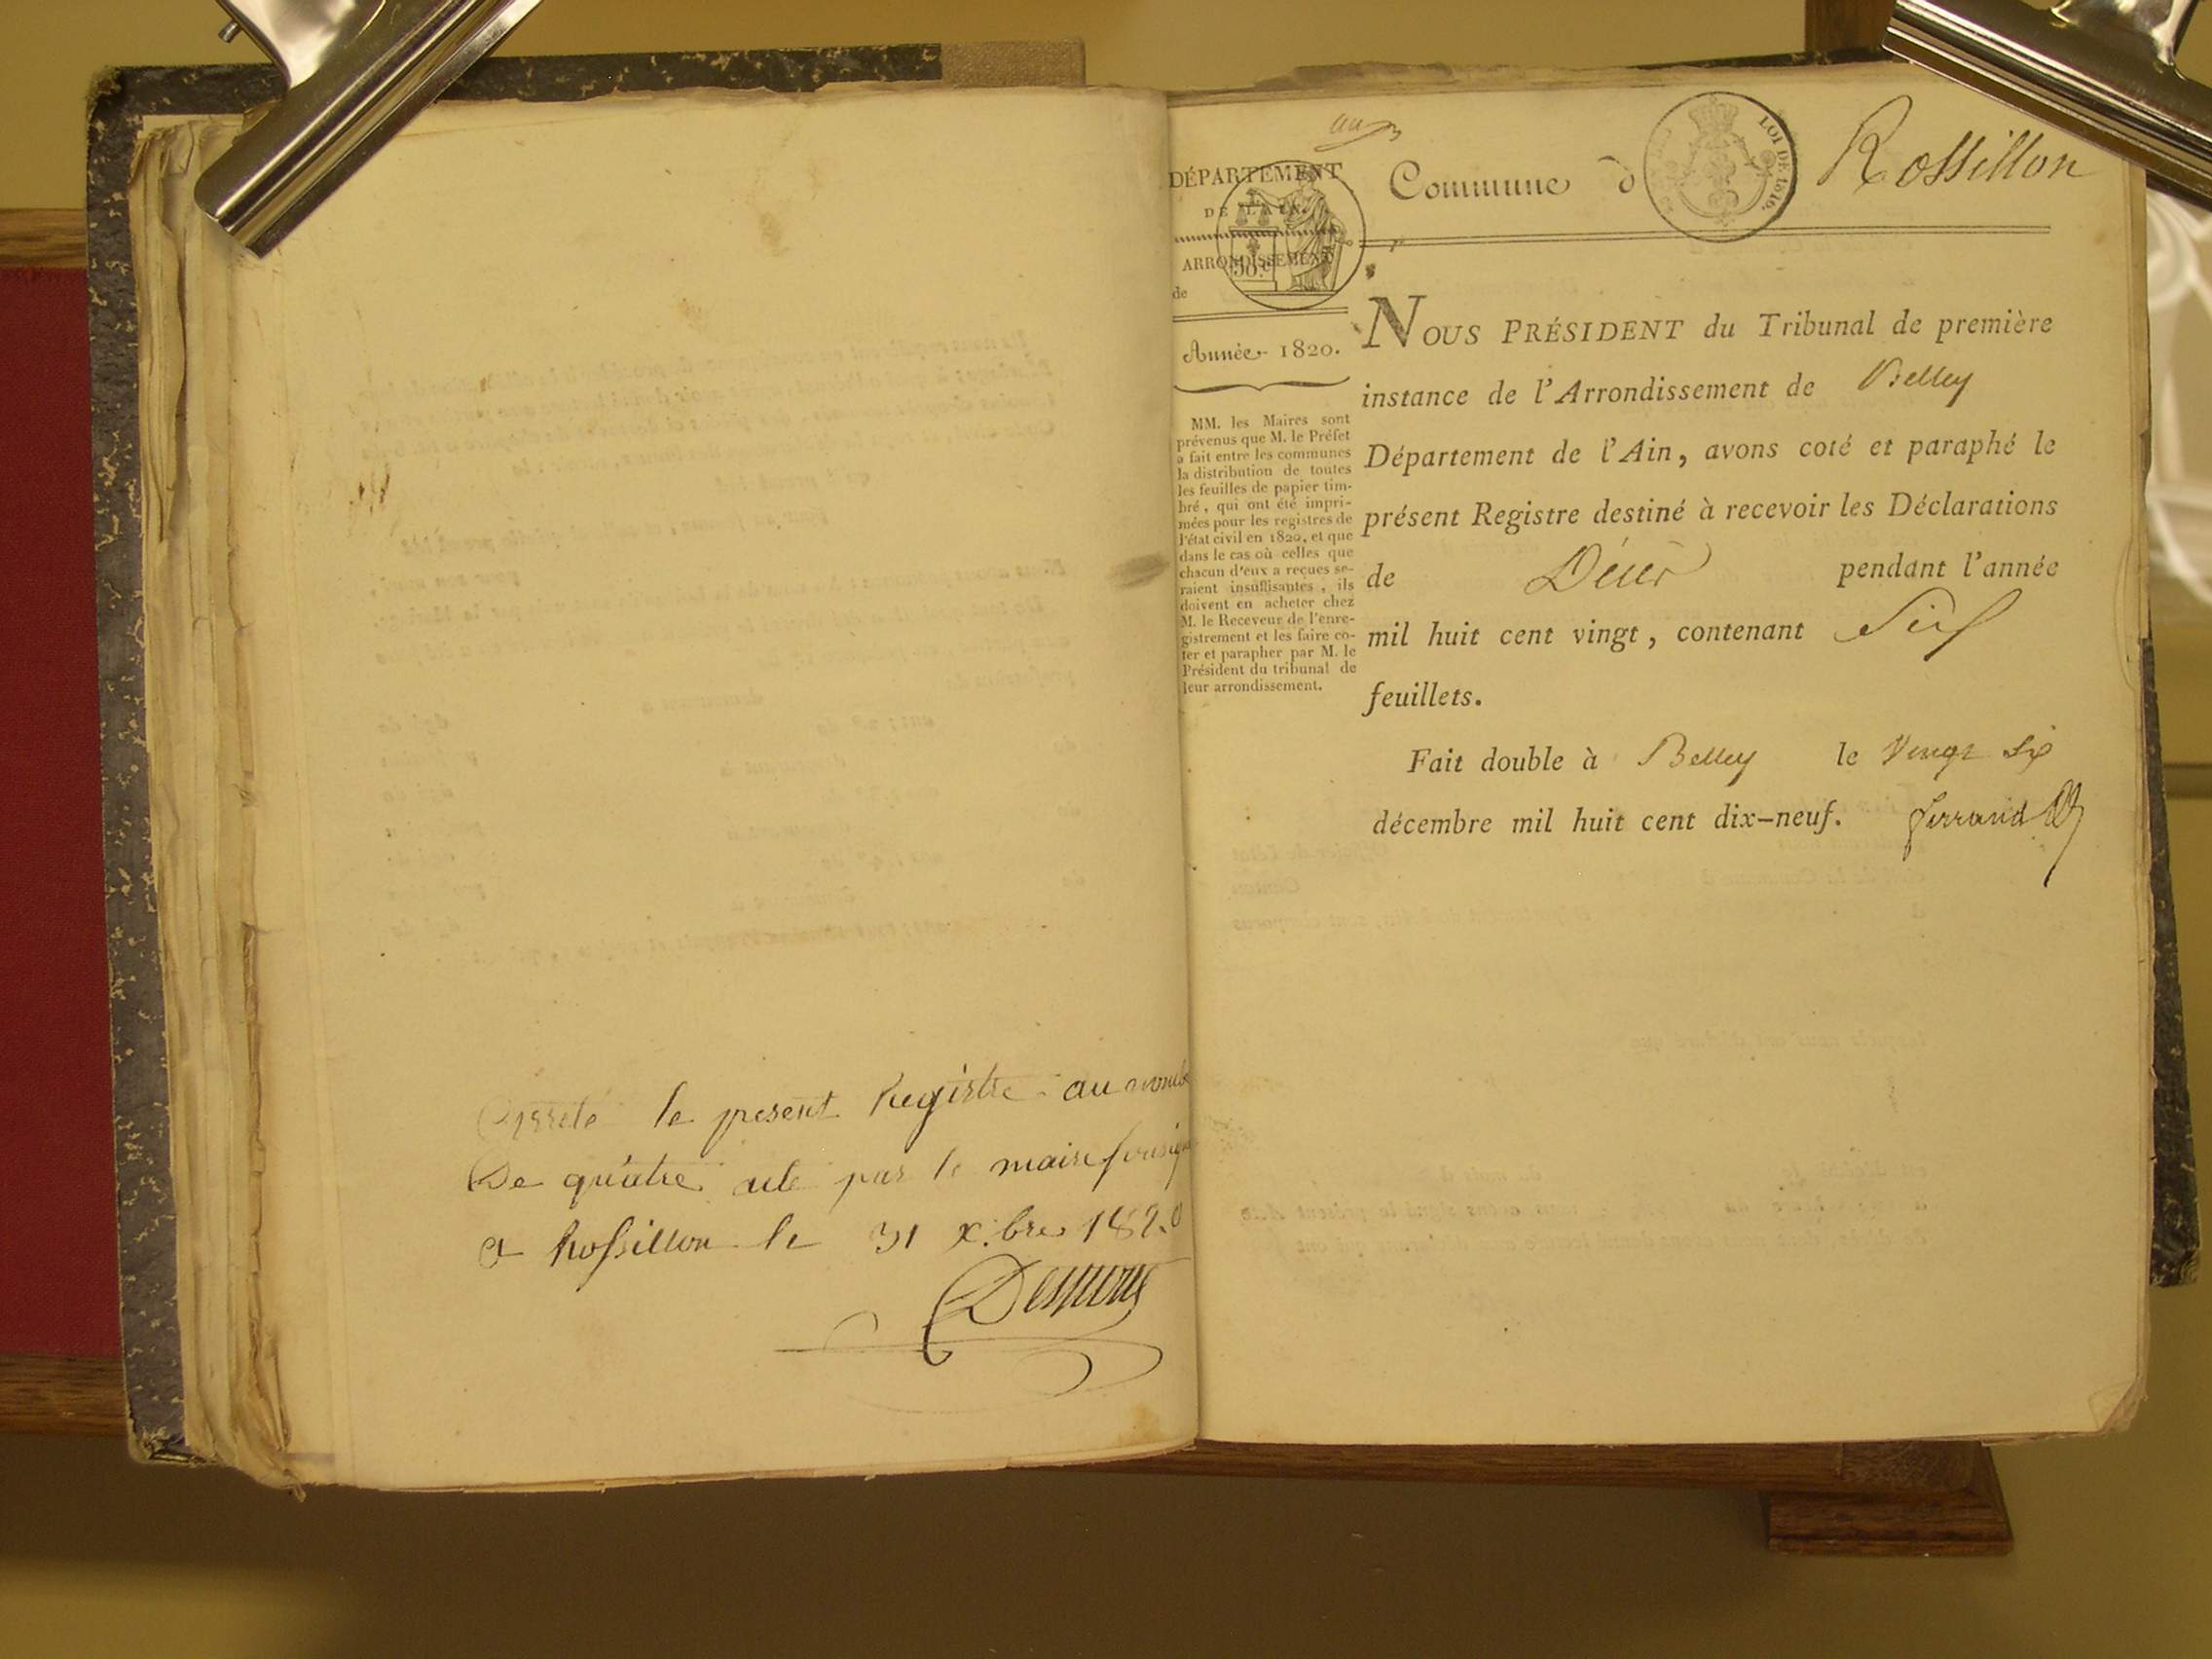 Arreté le present Registre au nomb
De quatre acte par le maire sousigné
a Rossillon le 31 x.bre 1820
DÉPARTEMENT
DE L'AIN.
ARRONDISSEMENT
de
50.c
Année 1820.
MM. les Maires sont
prévenus que M. le Préfet
a fait entre les communes
la distribution de toutes
les feuilles de papier tim-
bré, qui ont été impri-
mées pour les registres de
l'état civil en 1820, et que
dans le cas où celles que
chacun d'eux a reçues se-
raient insuffisantes, ils
doivent en acheter chez
M. le Receveur de l'enre-
gistrement et les faire co-
ter et parapher par M. le
Président du tribunal de
leur arrondissement.
Commune d Rossillon
LOI DE 1816.
NOUS PRÉSIDENT du Tribunal de première
instance de l'Arrondissement de Belley
Département de l'Ain, avons coté et paraphé le
présent Registre destiné à recevoir les Déclarations
de Décès pendant l'année
mil huit cent vingt, contenant Six
feuillets.
Fait double à Belley le Vingt Six
décembre mil huit cent dix-neuf. ferrand